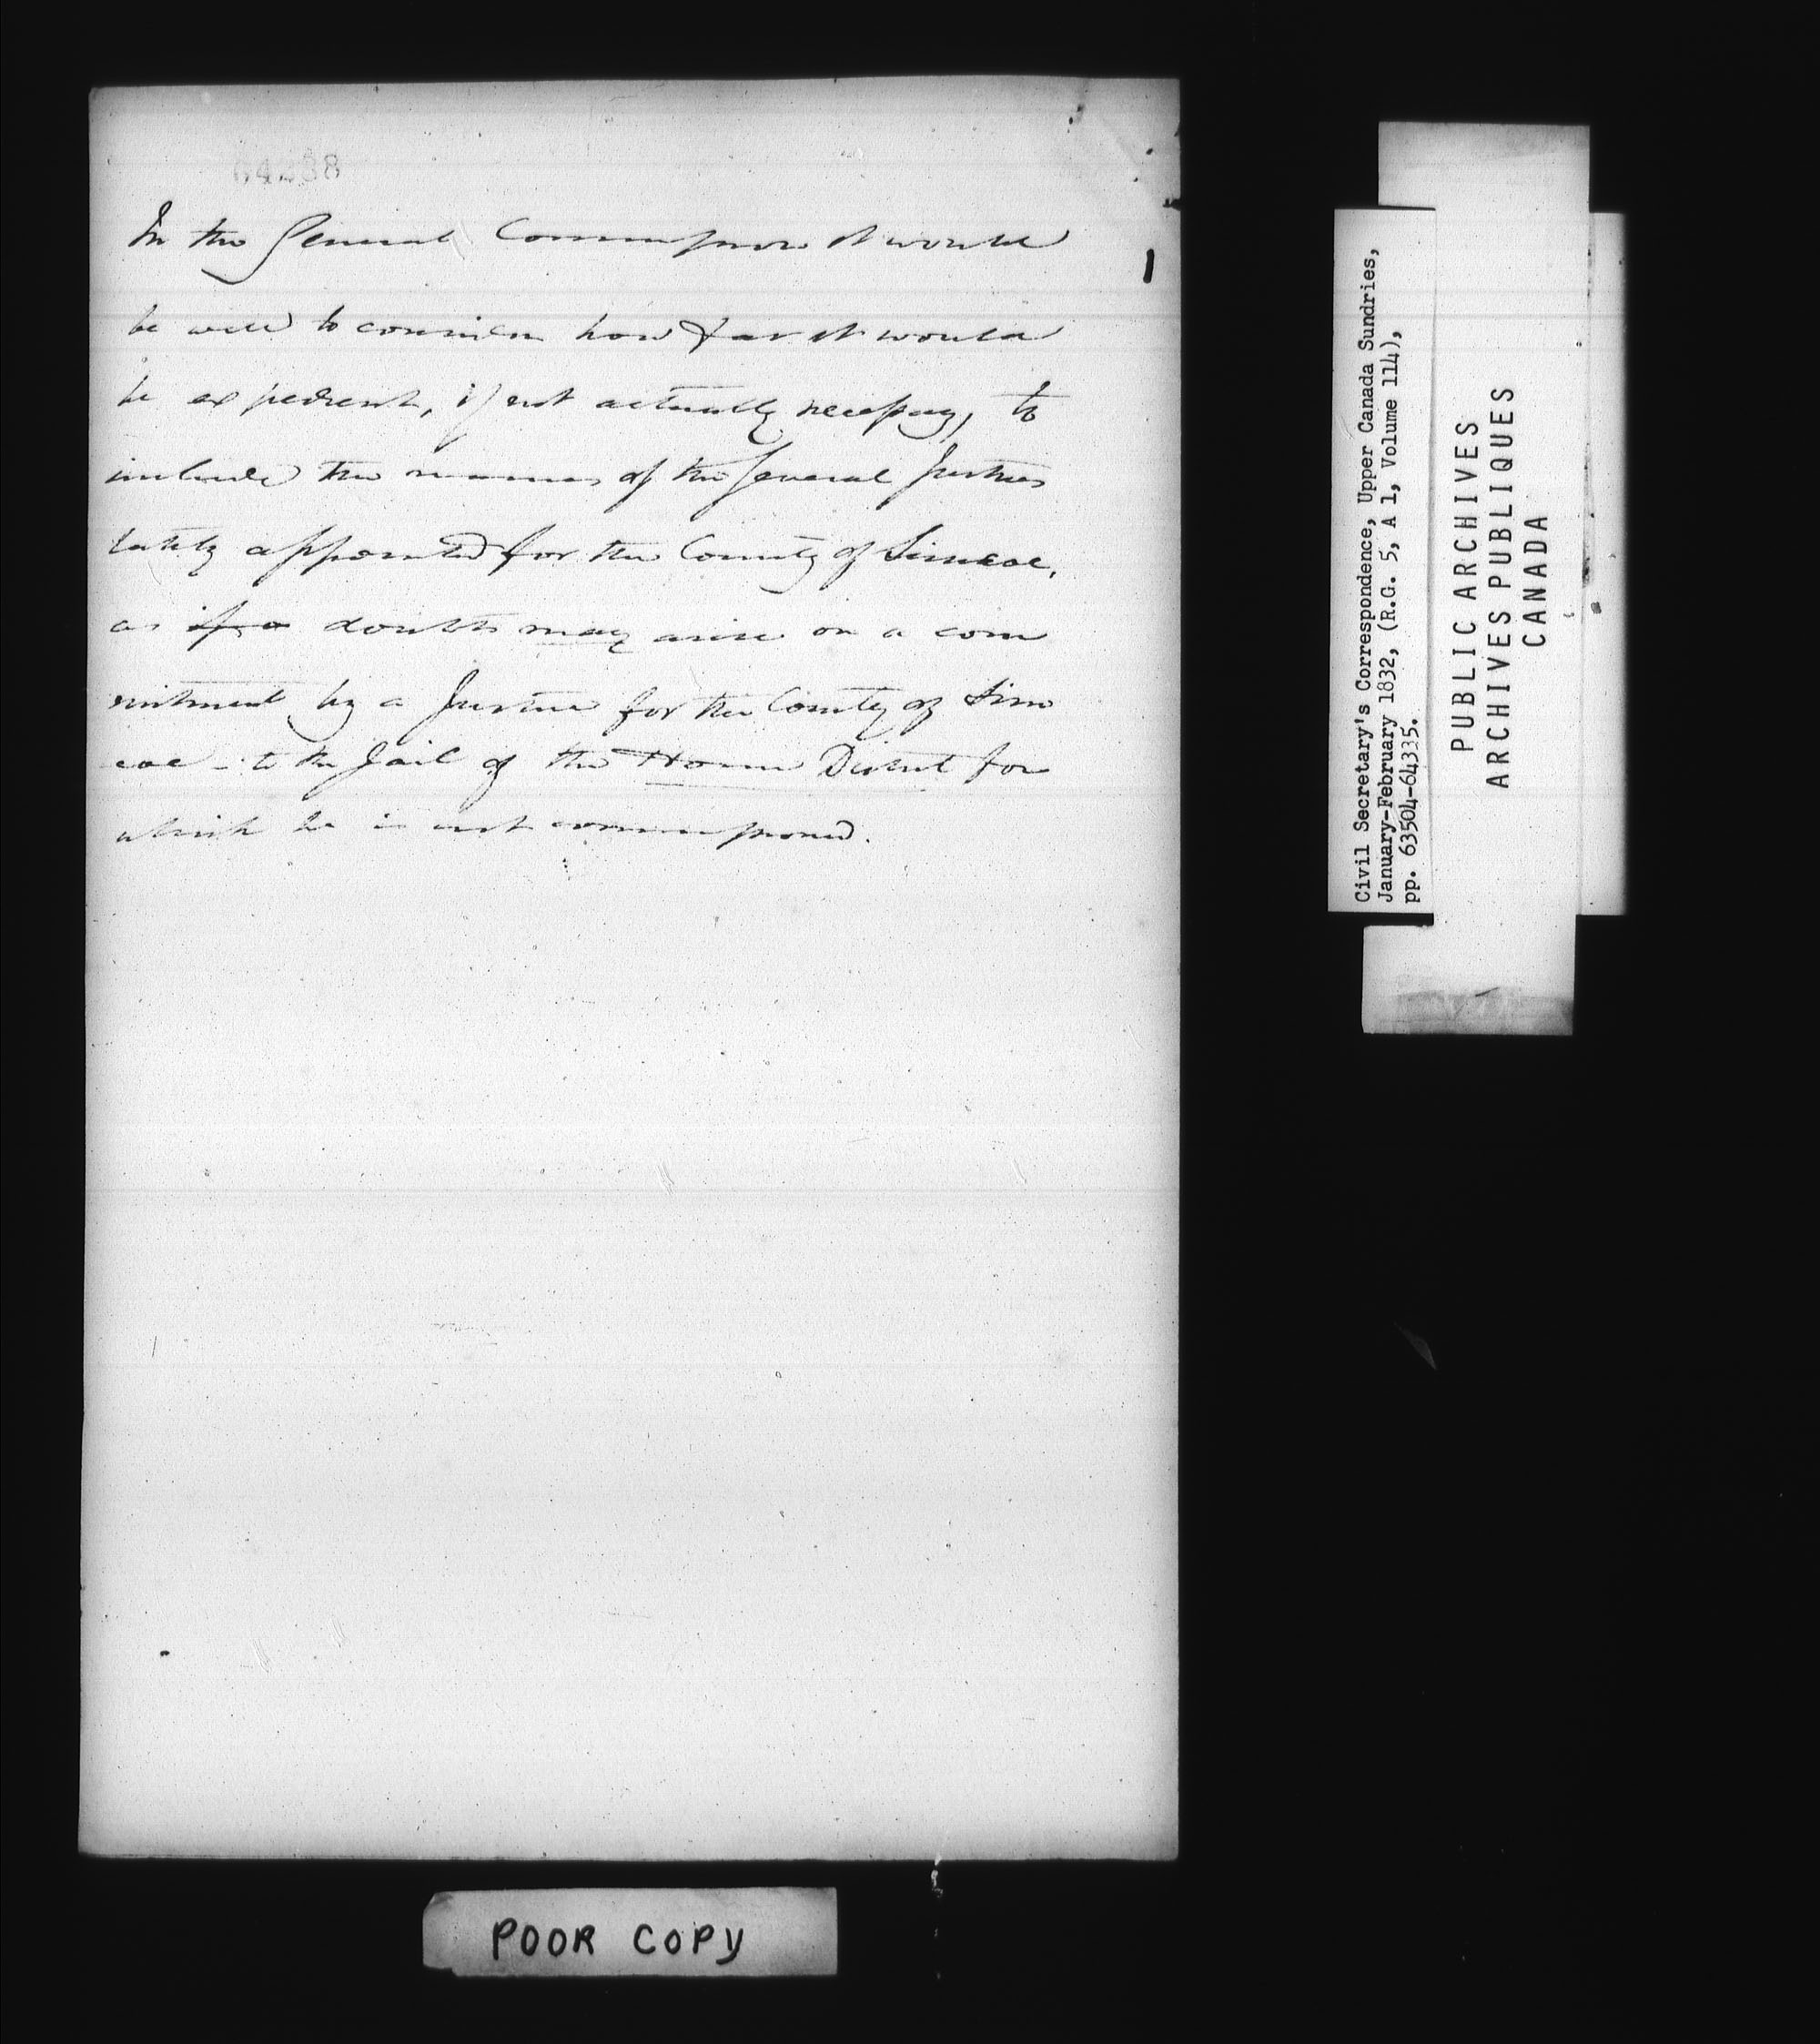 In the General Commission it would
be well to consider how far it would
be expedient, if not actually necessary, to
include the names of the several Justices
lately appointed for the County of Simcoe,
as if a doubts may arise on a com
mitment by a Justice for the County of Sim
coe - to the Jail of the Home District for
which he is not commissioned.
POOR COPY
Civil Secretary's Correspondence, Upper Canada Sundries,
January-February 1832, (R.G. 5, A 1, Volume 114),
pp. 63504-64335.
PUBLIC ARCHIVES
ARCHIVES PUBLIQUES
CANADA